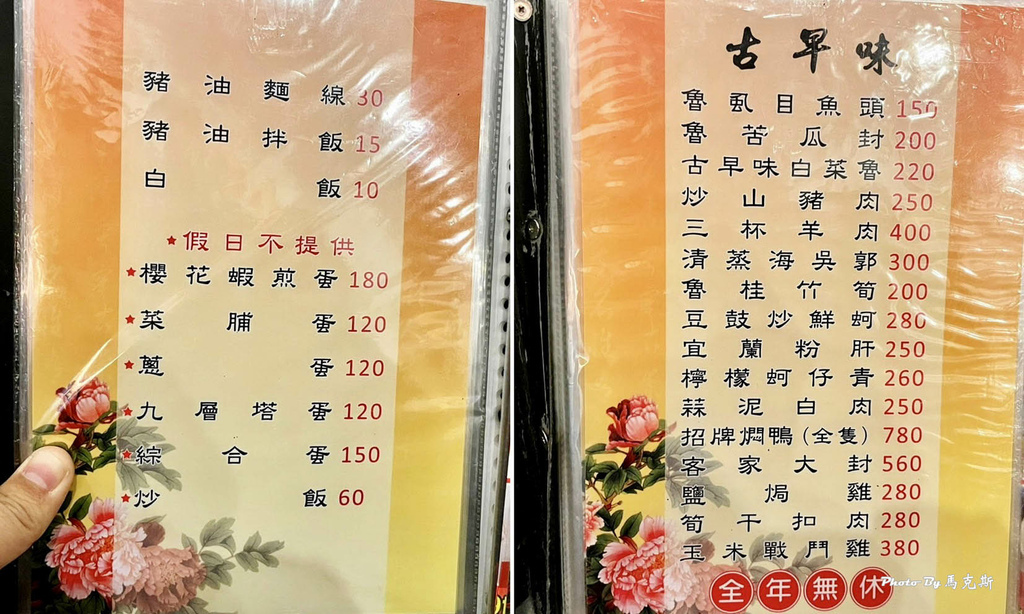 豬油麵線 30
豬油拌飯 15
白飯 10
★假日不提供
★櫻花蝦煎蛋 180
★菜脯蛋 120
★蔥蛋 120
★九層塔蛋 120
★綜合蛋 150
★炒飯 60
古早味
魯虱目魚頭 150
魯苦瓜封 200
古早味白菜魯 220
炒山豬肉 250
三杯羊肉 400
清蒸海吳郭 300
魯桂竹筍 200
豆鼓炒鮮蚵 280
宜蘭粉肝 250
檸檬蚵仔青 260
蒜泥白肉 250
招牌燜鴨(全隻) 780
客家大封 560
鹽焗雞 280
筍干扣肉 280
玉米戰鬥雞 380
全年無休
Photo By 馬克斯